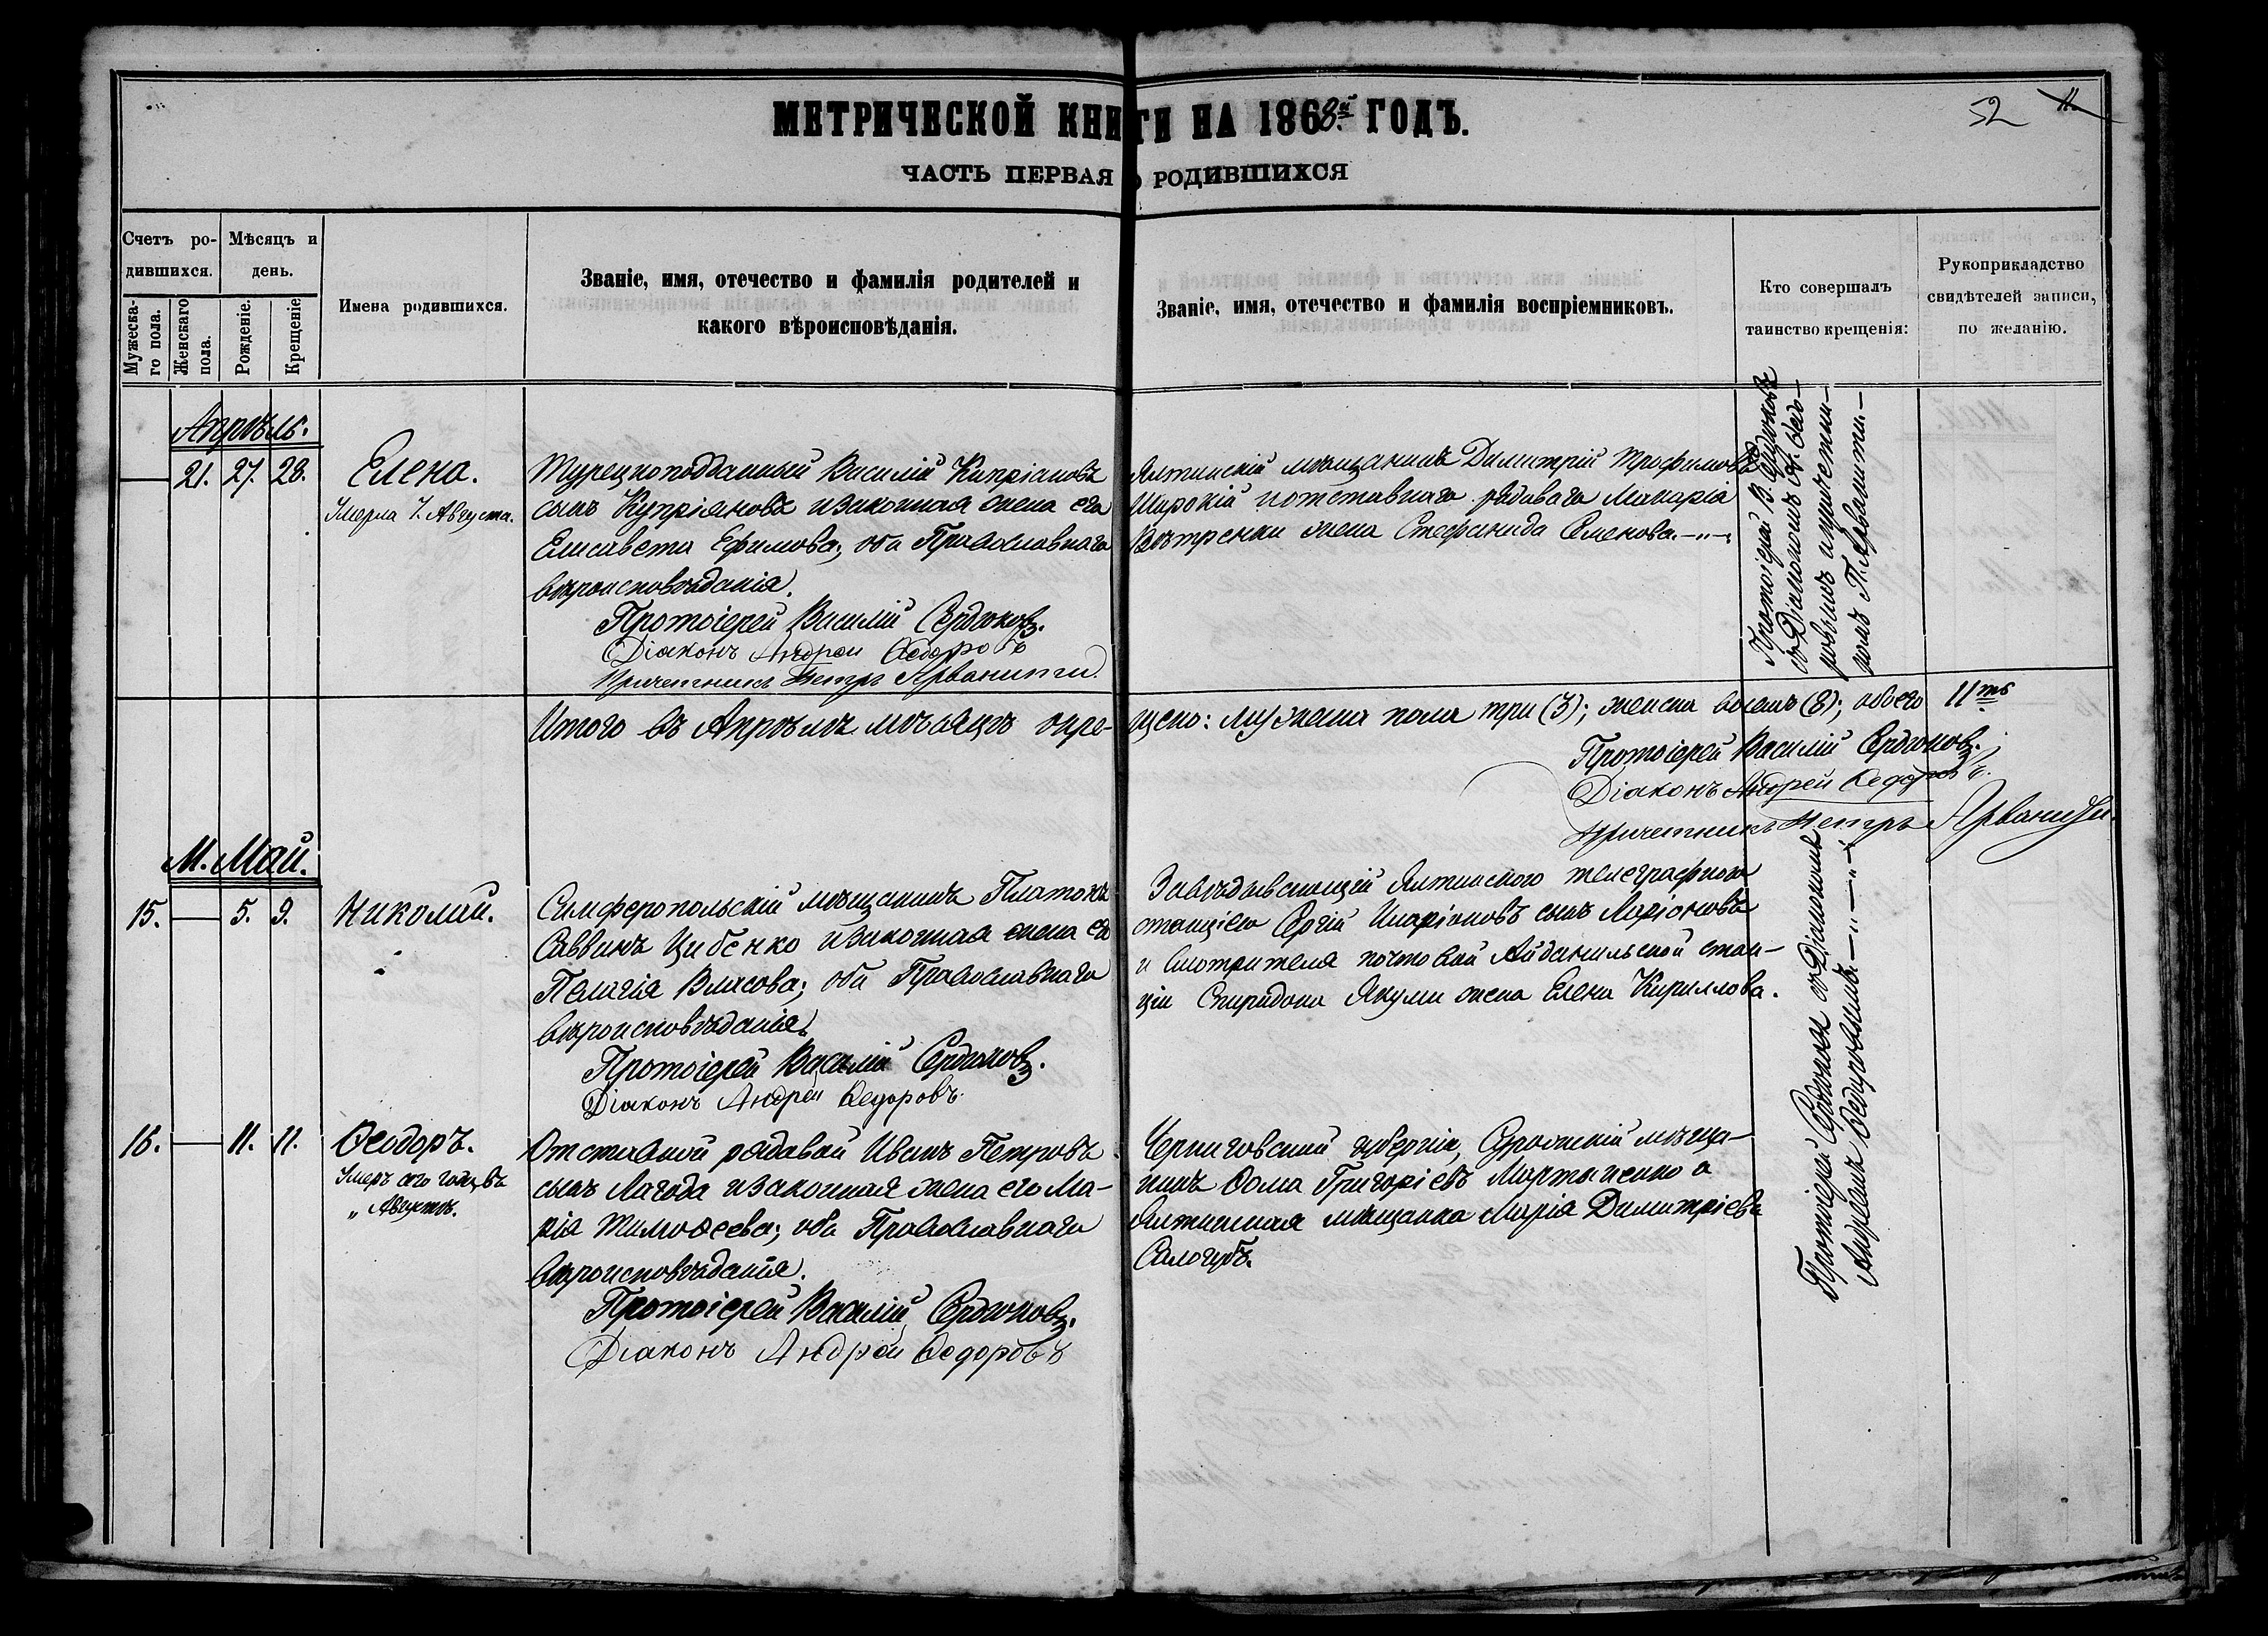 52
МЕТРИЧЕСКОЙ КНИГИ НА 1868й ГОДЪ.
ЧАСТЬ ПЕРВАЯ О РОДИВШИХСЯ
Счетъ ро-
дившихся.
Мужеска-
го пола.
Женскаго
пола.
Мѣсяцъ и
день.
Рожденіе.
Крещеніе.
Имена родившихся.
Званіе, имя, отечество и фамилія родителей и
какого вѣроисповѣданія.
Званіе, имя, отечество и фамилія воспріемниковъ.
Кто совершалъ
таинство крещенія:
Рукоприкладство
свидѣтелей записи,
по желанію.
Апрѣль.
21. 27. 28.
Елена.
Умерла 7. Августа.
Турецкоподданный Василій Кипріановъ
сынъ Купріяновъ и законная жена его
Елисавета Ефимова; оба Православнаго
вѣроисповѣданія.
Протоіерей Василій Сердюковъ.
Діаконъ Андрей Ѳедоровъ
Причетникъ Петръ Арванити.
Ялтинскій мѣщанинъ Димитрій Трофимовъ
Широкій и отставнаго рядоваго Макарія
жена Стефанида Семенова.
Протоіерей В. Сердюковъ
съ Діакономъ А. Ѳедо-
ровымъ и причетни-
комъ П. Арванити.
Итого въ Апрѣлѣ мѣсяцѣ окре-
щено: мужеска пола три (3); женска восемь (8); обоего 11ть
Протоіерей Василій Сердюковъ.
Діаконъ Андрей Ѳедоровъ.
Причетникъ Петръ Арванити.
М. Май.
15. 5. 9.
Николай.
Симферопольскій мѣщанинъ Платонъ
Саввинъ Цибенко и законная жена его
Пелагія Власова; оба Православнаго
вѣроисповѣданія.
Протоіерей Василій Сердюковъ.
Діаконъ Андрей Ѳедоровъ.
Завѣдывающій Ялтинскою телеграфною
станціею Сергій Иларіоновъ сынъ Ларіоновъ
и Смотрителя почтовой Айданильской стан-
ціи Спиридона Якуми жена Елена Кириллова.
16. 11. 11.
Ѳеодоръ.
Умеръ сего года, въ
„ Августѣ.
Отставной рядовой Иванъ Петровъ
сынъ Лагода и законная жена его Ма-
рія Тимоѳеева; оба Православнаго
вѣроисповѣданія.
Протоіерей Василій Сердюковъ.
Діаконъ Андрей Ѳедоровъ
Черниговской губерніи, Суражскій мѣща-
нинъ Ѳома Григоріевъ Мартыненко и
Ялтинская мѣщанка Марія Димитріева
Самогубъ.
Протоіерей Сердюковъ съ Діакономъ
Андреемъ Ѳедоровымъ.